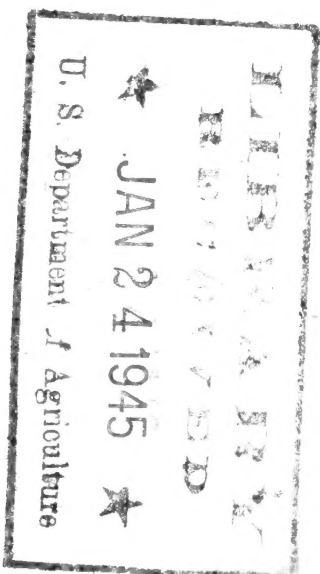 LIBRARY
RECEIVED
★ JAN 24 1945 ★
U. S. Department of Agriculture